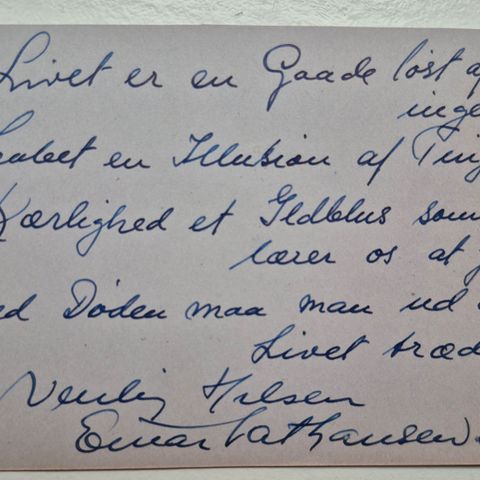 Livet er en Gaade løst af
inge
skabet en Illusion af Ting
Kærlighed et Ildblus som
lærer os at
ed Døden maa man ud
Livet træd
Venlig Hilsen
Einar Nathansen.